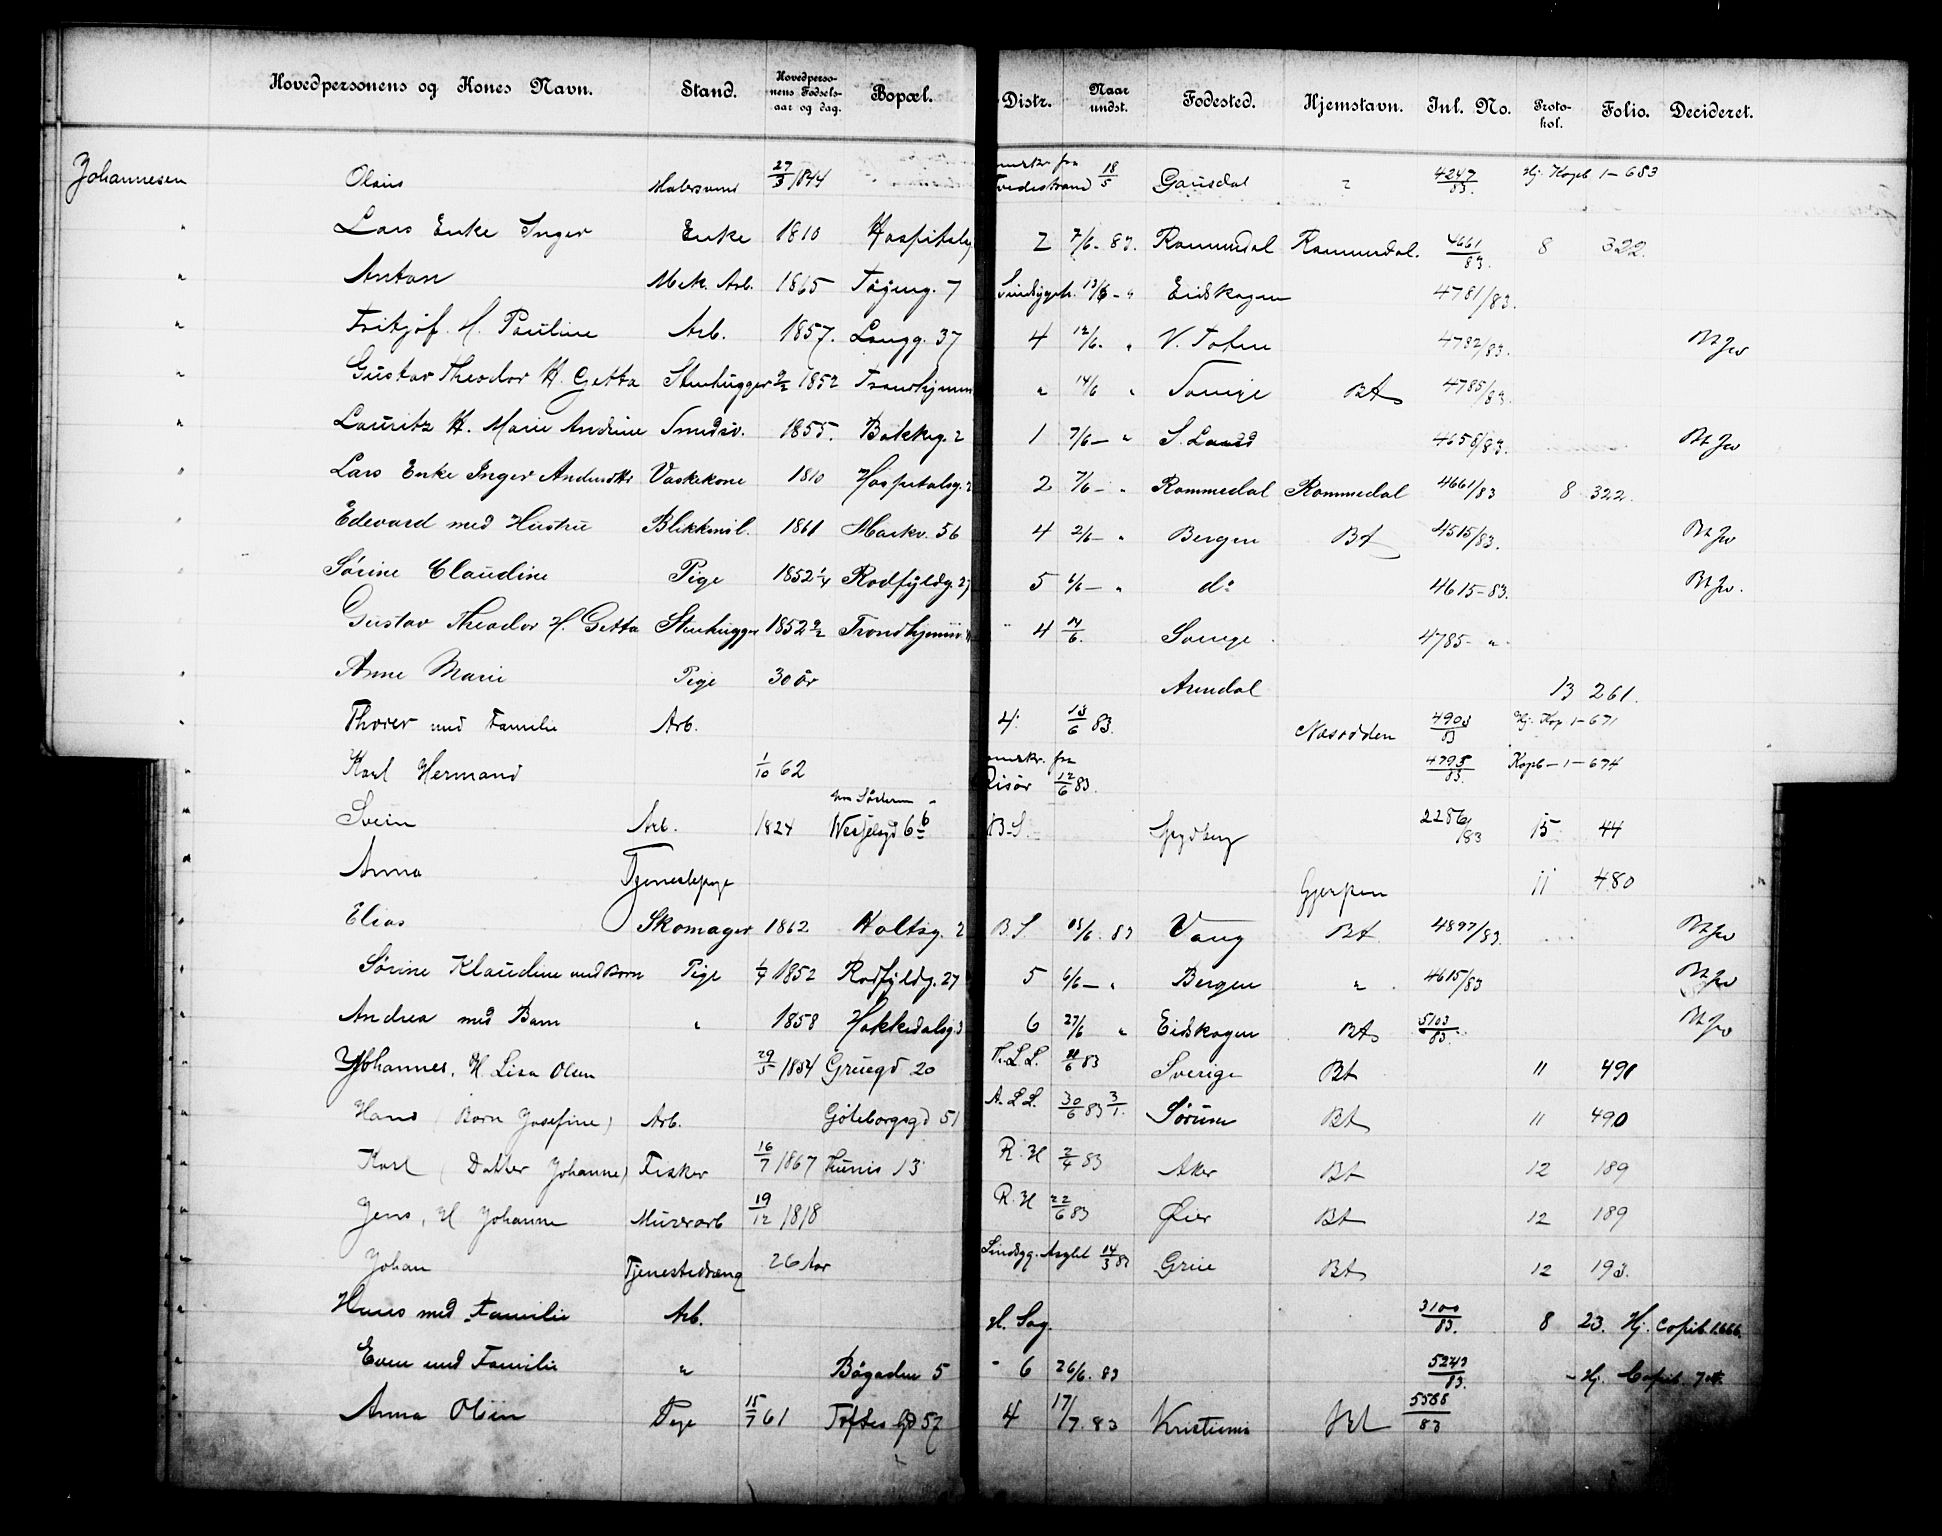 Hovedpersonens og Kones Navn. Stand. Hovedpersonens Fødselsaar og dag. Bopæl. Distr. Naar undst. Fødested. Hjemstavn. Inl. No. Protokol. Folio. Decideret.
Johannesen Olaus Malersvend 27/3 1844 anmrkn fra Tvedestrand 18/5 Gausdal " 4247/83. Hj. Kopb 1-683
" Lars Enke Inger Enke 1810 Hospitalsg 2 7/6 - 83. Rommedal Rommedal. 4661/83. 8 322.
" Anton Mek. Arb. 1865 Tøyeng. 7 13/6 - " Eidskogen 4781/83.
" Fritjof H. Pauline Arb. 1857. Langg. 37 4 12/6. " V. Toten 4782/83. Bt Jw
" Gustav Theodor H. Getta Stenhugger 9/2 1852 Trondhjemsv " 14/6 " Sverige Bt 4785/83.
" Lauritz H. Marie Andrine Smedsv. 1855. Bakkeg. 2 1 7/6 — " S. Land 4658/83. Bt Jw
" Lars Enke Inger Andersdtr Vaskekone 1810 Hospitalsg. 2 2 7/6 — " Rommedal Rommedal 4661/83 8 322.
" Edevard med Hustru Blikkensl. 1861 Markv. 56 4 2/6 — " Bergen Bt 4515/83. Bt Jw
" Sørine Claudine Pige 1852 1/4 Rodfyldg. 27 5 6/6 — " do. 4615-83. Bt Jw.
Gustav Theodor H. Getta Stenhugger 1852 9/2 Trondhjemsv. " 4 14/6. Sverige 4785 - " -
" Anne Marie Pige 30 år Arendal 13 261.
" Thorer med Familie Arb. 4. 13/6 83. Næsodden 4903/83 Hj. Kop 1-671
" Karl Hermand 1/10 62 anmrkn. fra Risør 12/6 83. 4795/83. Kopb - 1 - 674
" Svein Arb. 1824 Wesselsgd 6 B.S. Spydberg 2286/83 15 44
" Anna Tjenestepige Gjerpen 11 480
" Elias Skomager 1862 Holtsg. 2 B.S. 13/6. 83 Vang Bt 4897/83. Bt Jw
" Sørine Klaudine med Barn Pige 1/4 1852 Rodfyldg. 27 5 6/6 — " Bergen " 4615/83 Bt Jw
" Andrea med Barn " 1858 Hakkedalsg. 3 6 27/6 " Eidskogen Bt 5103/83. Bt Jw
" Johannes, H. Lisa Olsen 29/5 1854 Gruegd 20 Th. L.L. 11/6 83 Sverige Bt 11 490
" Hans (Barn Josefine) Arb. Göteborgsgd 51 A. L.L. 30/6 83 3/1. Sørum Bt 11 490
" Karl (Datter Johanne) Fisker 16/7 1867 13 R.H 2/4 83 Aker Bt 12 189
" Jens, H Johanne Murerarb 19/12 1818 R.H 22/6 83 Øier Bt 12 189
" Johan Tjenestedreng 26 Aar Sindsyg. Asylet 14/3 83 Grue Bt 12 193.
" Hans med Familie Arb. H. Sag. 3100/83. 8 23. Hj. Copib. 1.666.
" Even med Familie " Bøgaden 5 - 6 26/6. 83 5243/83. - Hj. Copib.
" Anna Olsen Pige 15/7 61 Toftes Gd 52 4 17/7. 83 Kristiania Bt 5568/83